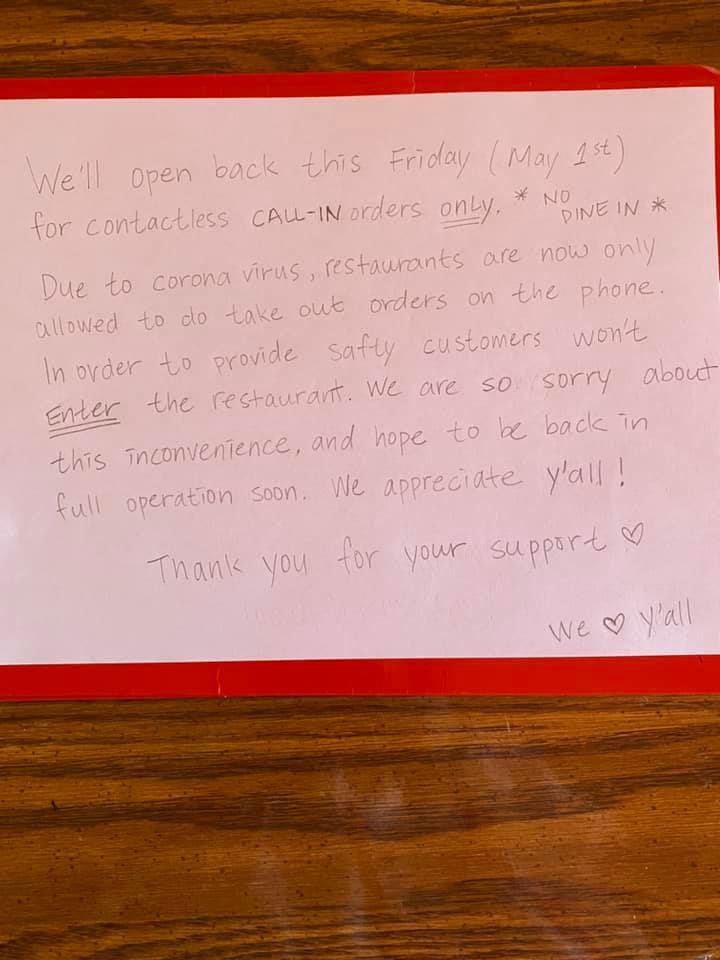 We'll open back this Friday (May 1st)
for contactless CALL-IN orders only. * NO DINE IN *
Due to corona virus, restaurants are now only
allowed to do take out orders on the phone.
In order to provide safty customers won't
Enter the restaurant. We are so sorry about
this inconvenience, and hope to be back in
full operation soon. We appreciate y'all!
Thank you for your support ♡
We ♡ y'all